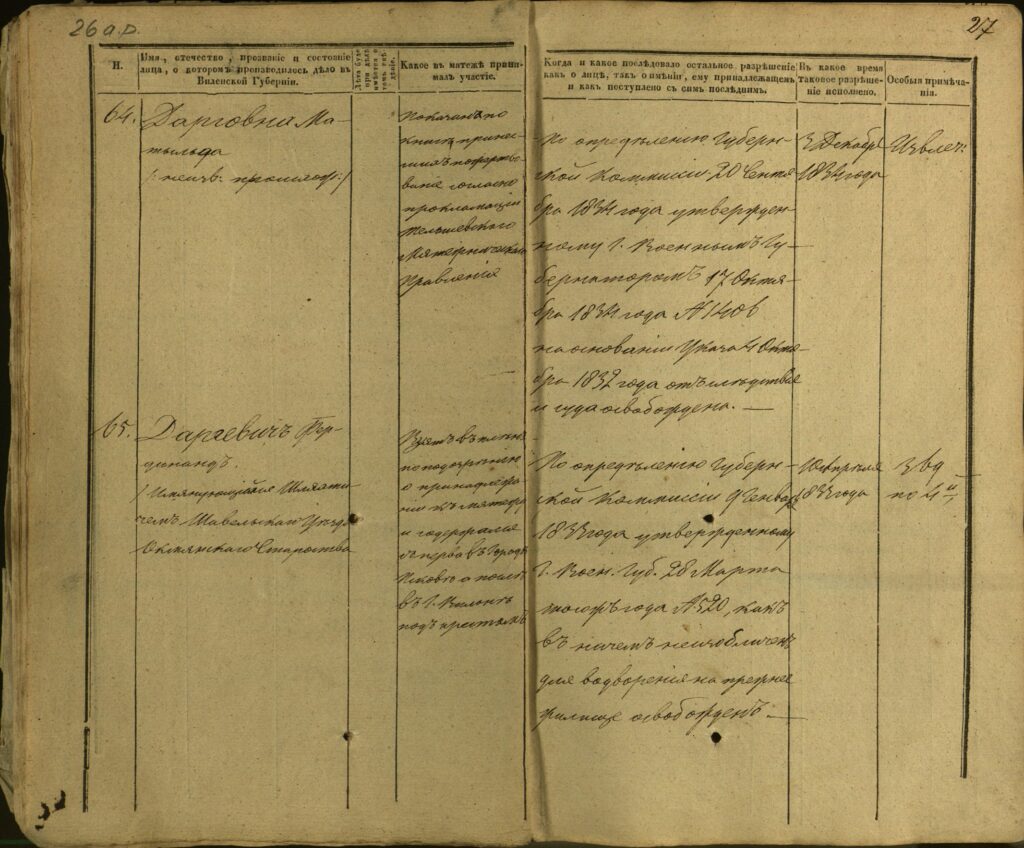 26 а.D.
27
Н.
Имя, отечество, прозваніе и состояніе
лица, о которомъ производилось дѣло въ
Виленской Губерніи.
Какое въ мятежѣ прини-
малъ участіе.
Когда и какое послѣдовало остальное разрѣшеніе
какъ о лицѣ, такъ о имѣніи, ему принадлежащемъ
и какъ поступлено съ симъ послѣднимъ.
Въ какое время
таковое разрѣше-
ніе исполнено.
Особыя примѣча-
нія.
64.
Дарговна Ма-
тыльда
/: неизв: происхож: /
Показана по
книгѣ принес-
шихъ пожертво-
ваніе согласно
прокламаціи
Тельшевскаго
Мятежническаго
Правленія
По опредѣленію Губерн-
ской Коммисіи 20 Сентя-
бря 1834 года утвержден-
ному Г. Военнымъ Гу-
бернаторомъ 17 Октя-
бря 1834 года
на основаніи Указа 4 Октя-
бря 1832 года отъ слѣдствія
и суда освобождена.
3 Декабря
1834 года
Извлеч:
65.
Даргевичъ Фер-
динандъ.
/ Имянующійся Шляхти-
чемъ Шавельскаго Уѣзда
Староства
Взятъ въ плѣнъ
по подозрѣнію
о принадлежа-
ніи къ мятежу
и содержался
съперва въ Городѣ
Псковѣ а послѣ
въ Г. Вильнѣ
подъ арестомъ
По опредѣленію Губерн-
ской Коммисіи 9 Генваря
1833 года утвержденному
Г. Воен. Губ. 28 Марта
тогожъ года № 520, какъ
въ ничемъ неизобличенъ
для водворенія на прежнее
жилище освобожденъ.
10 Апрѣля
1833 года
по 4й